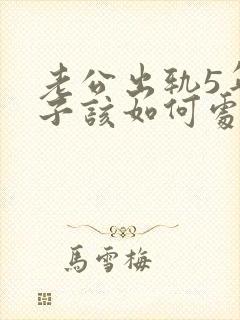 老公出轨5年
子該如何處
馬雪梅